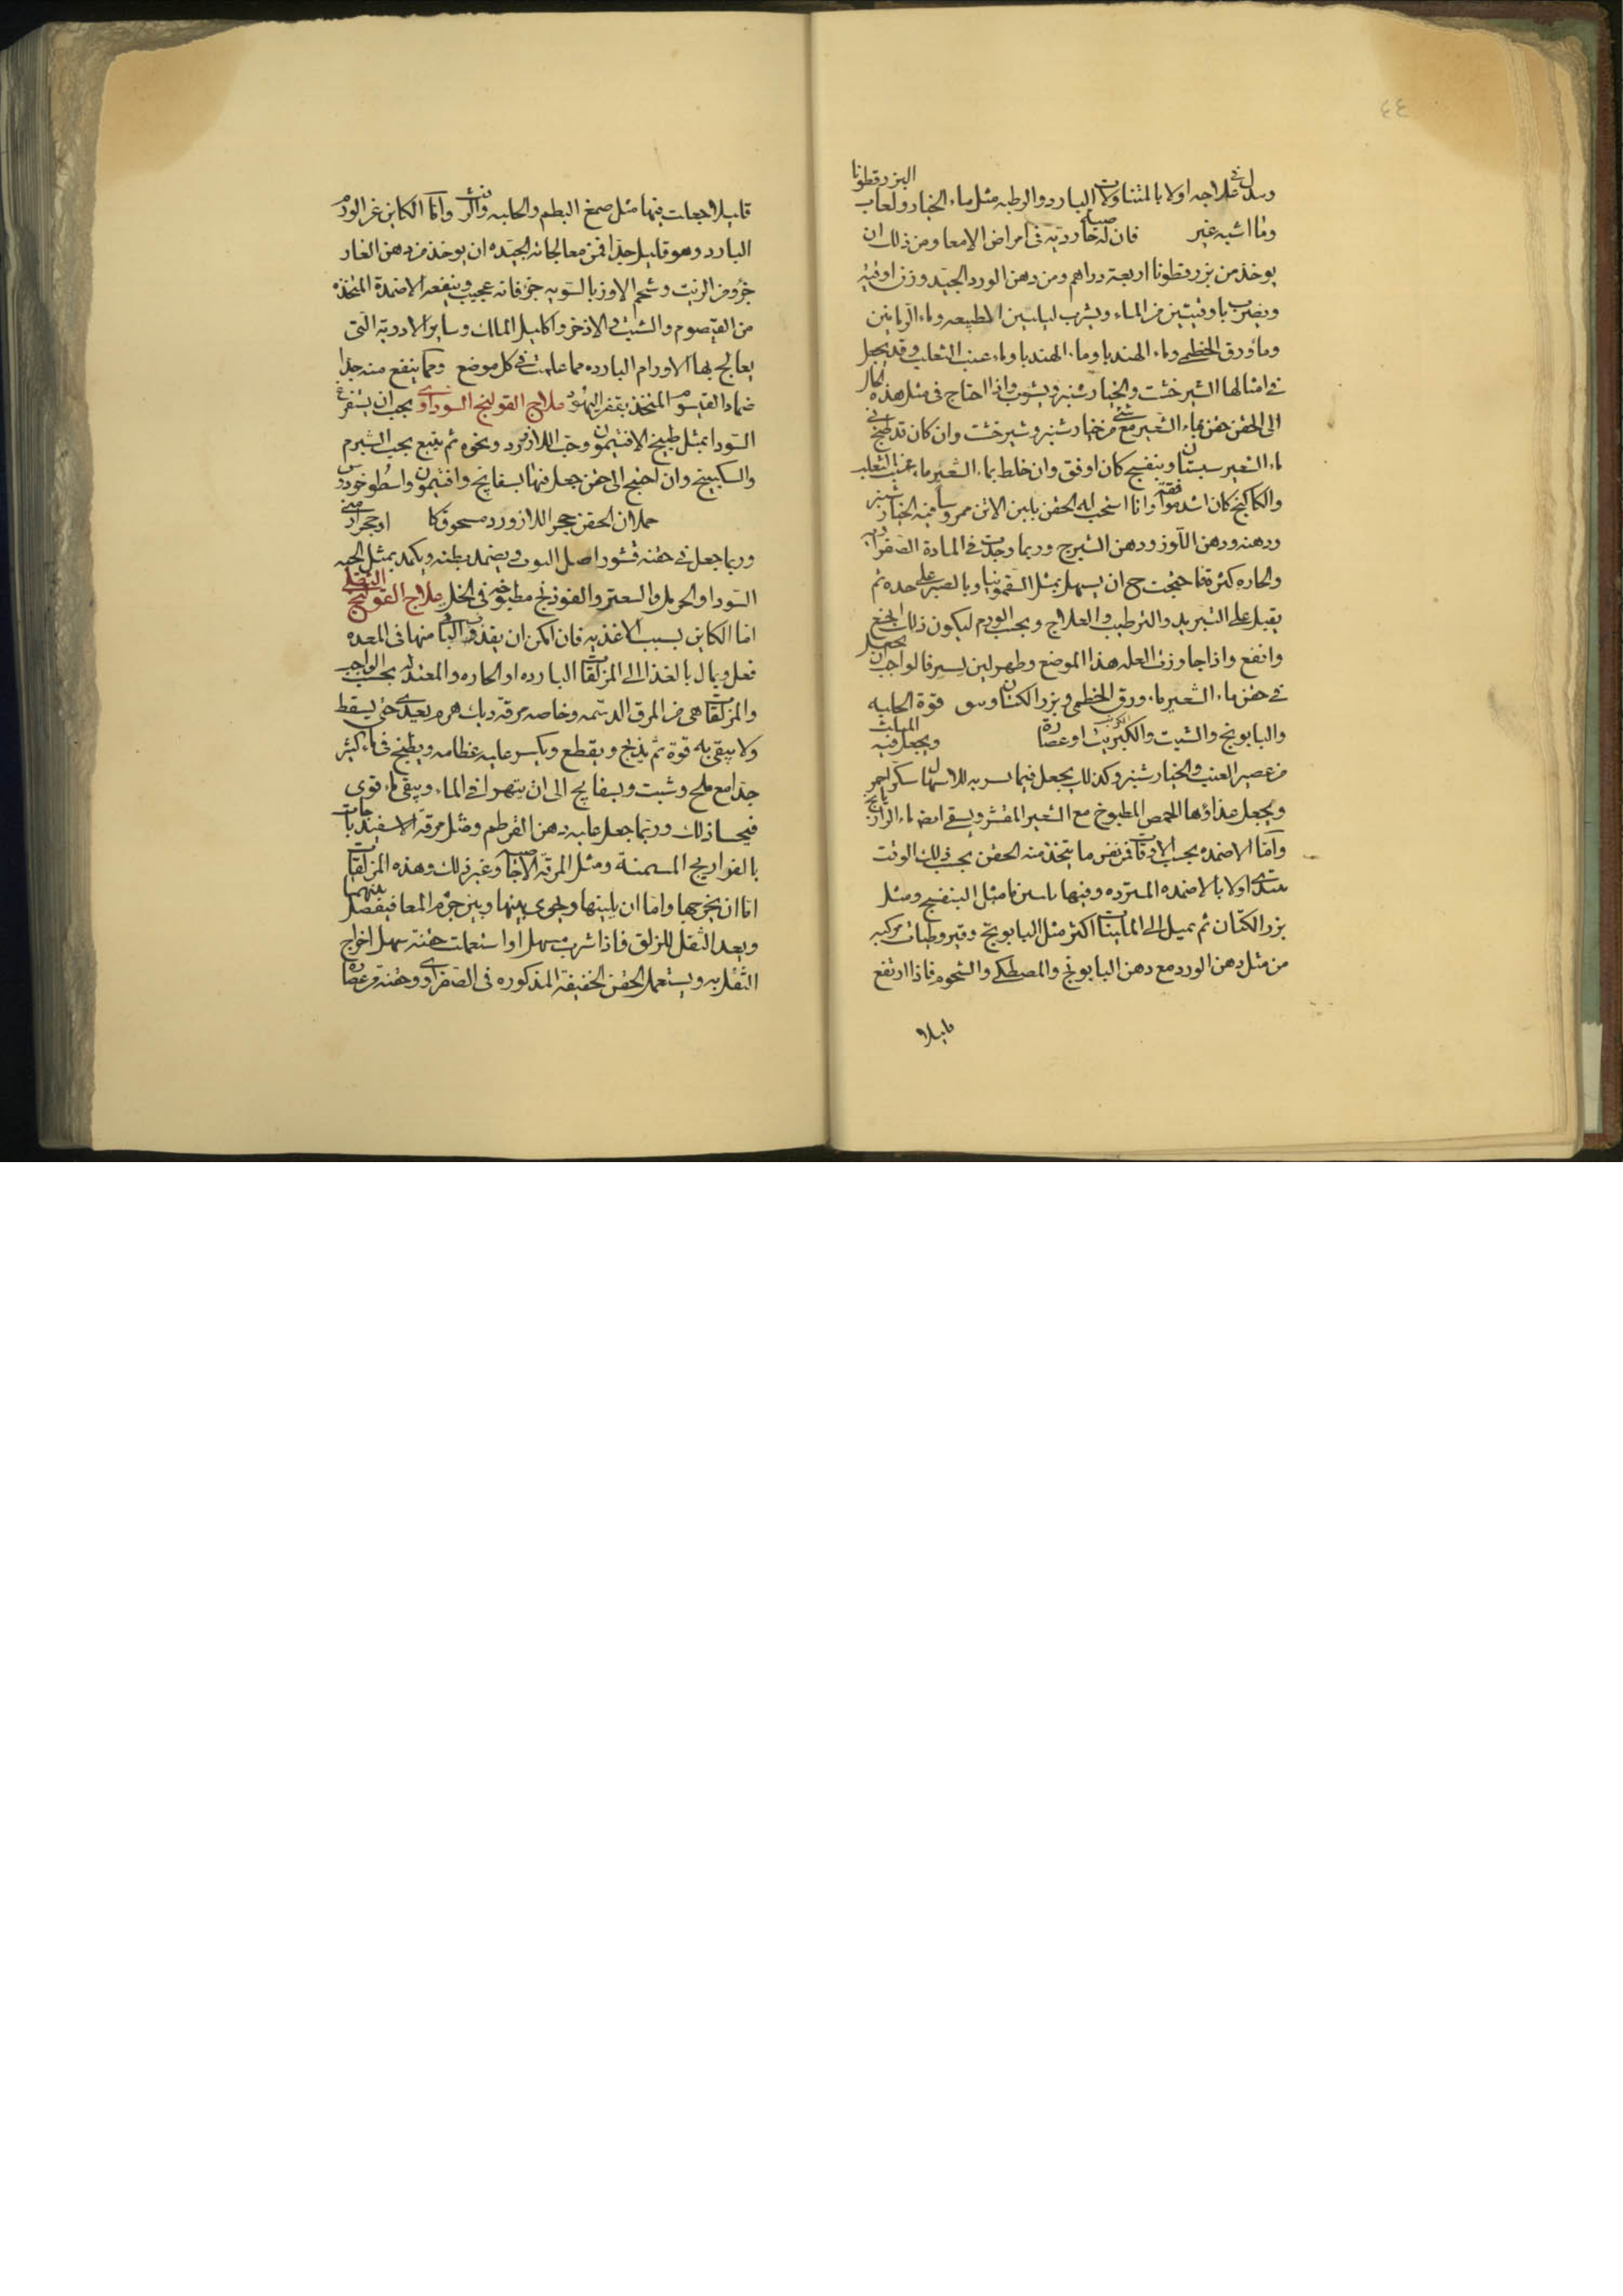 ٤٤
في علاجه اولا بالمتناولات الباردة والرطبه مثل ماء الخيار ولعاب البزرقطونا
وما اشبه غير فان له خاصية رديه فى امراض الامعا ومن ذلك ان
يوخذ من بزرقطونا اربعة دراهم ومن دهن الورد الجيد وزن اوقيه
ويضرب باوقيتين من الماء ويشرب لتليين الطبيعه وماء الرمانين
وماء ورق الخطمى وماء الهندبا وماء الهندبا وماء عنب الثعلب وقد يجعل
فى امثالها الشيرخشت والخيارشنبر ويشرب واذا احتاج فى مثل هذه الحال
الى الحقن حقن بماء الشعير مع شئ من خيارشنبر وشيرخشت وان كان قد طبخ فى
ماء الشعير سبستان وبنفسج كان اوفق وان خلط بماء الشعير ماء عنب الثعلب
والكاكنج كان اشد موافقه وانا استحب له الحقن بلبن الاتن ممروسا فيه الخيارشنبر
ودهنه ودهن اللوز ودهن الشيرج وربما وجدت فى المادة الصفراويه
والحاره كثرة فاحتجت ح ان يسهل بمثل السقمونيا وبالصبر على حده ثم
يقبل على التبريد والترطيب والعلاج وبحسب الورم ليكون ذلك انجع
وانفع واذا جاوزت العله هذا الموضع وظهر لين يسير فالواجب ان يجعل
فى حقن ماء الشعير ماء ورق الخطمى وبزر الكتان قوة الحلبه
والبابونج والشبت والكبريت او عصارة ويجعل فيه المثلث
من عصير العنب والخيارشنبر وكذلك يجعل فيما للاسهال سكر احمر
ويجعل غذاؤها الحمص المطبوخ مع الشعير المقشر ويسقى ايضا ماء الرازيانج
واما الاضمده بحسب الاوقات فمن نفس ما يتخذ منه الحقن بحسب ذلك الوقت
يبتدى اولا بالاضمده المبرده وفيها تليين ما مثل البنفسج ومثل
بزر الكتان ثم يميل الى الملينات اكثر مثل البابونج وقيروطيات مركبه
من مثل دهن الورد مع دهن البابونج والمصطكى والشحوم فاذا ارتفع
قليلا
قليلا جعلت فيها مثل صمغ البطم والحلبه والزفت واما الكاين عن الورم
البارد وهو قليل جدا فمن معالجاته الجيده ان يوخذ من دهن الغار
جزو ومن الزيت وشحم الاوز بالسويه جزو فانه عجيب وينفعه الاضمدة المتخذه
من القيصوم والشبث والاذخر واكليل الملك وساير الادوية التى
يعالج بها الاورام البارده مما علمت فى كل موضع ومما ينفع منه جدا
ضماد القيسوم المتخذ بقفر اليهود علاج القولنج السوداوى يجب ان يستفرغ
السودا بمثل طبيخ الافتيمون وحب اللازورد ونحوه ثم يتبع بحب الشبرم
والسكبينج وان احتيج الى حقن جعل فيها بسفايج وافتيمون واسطوخودوس
حملان الحقن حجر اللازورد مسحوقا او حجر ارمنى
وربما جعل فى حقنه قشور اصل التوت ويضمد بطنه ويكمد بمثل الحبه
السودا والحرمل والسعتر والفوذنج مطبوخه فى الخل علاج القولنج الثفلى
اما الكاين بسبب الاغذيه فان امكن ان يقذف الباقى منها فى المعده
فعل ويمال بالغذا الى المزلقات البارده او الحاره والمعتدله بحسب الواجب
والمزلقات هى من المرق الدسمه وخاصه مرقة ديك هرم يعدى حتى يسقط
ولا يبقى به قوة ثم يذبح ويقطع ويكسر عليه عظامه ويطبخ فى ماء كثير
جدا مع ملح وشبت وبسفايج الى ان يتهرا فى الماء ويبقى ماء قوى
فيحسا ذلك وربما جعل عليه دهن القرطم ومثل مرقة الاسفيدباجات
بالفراريج المسمنة ومثل المرقه الاجاصيه وغير ذلك وهذه المزلقات
اما ان يخرجها واما ان يلينها ويجرى بينها وبين جرم المعا فيفصل بينهما
ويعد الثفل للزلق فاذا شرب مسهل او استعملت حقنة سهل اخراج
الثفل به ويستعمل الحقن الخفيفة المذكوره فى الصفراوى وحقنه من عصارة